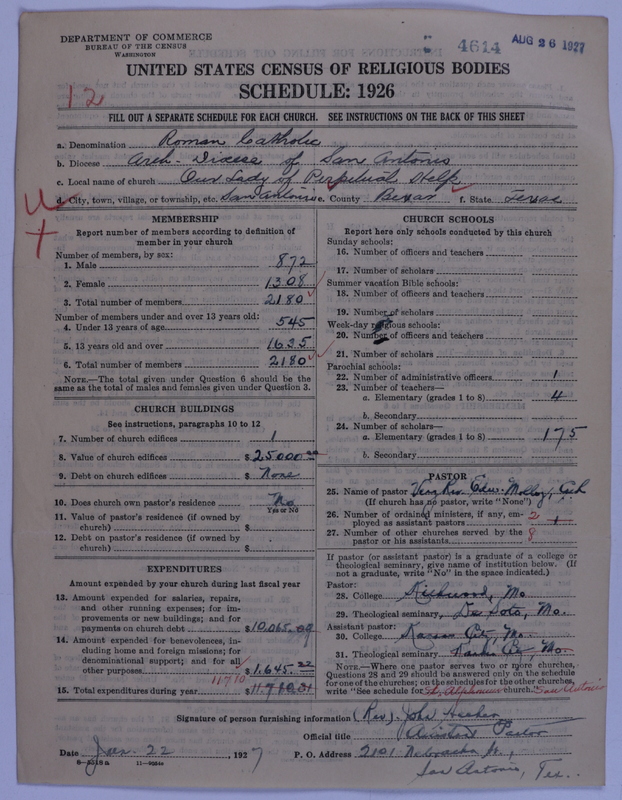 DEPARTMENT OF COMMERCE
BUREAU OF THE CENSUS
WASHINGTON
4614 AUG 26 1927
UNITED STATES CENSUS OF RELIGIOUS BODIES
SCHEDULE: 1926
12
FILL OUT A SEPARATE SCHEDULE FOR EACH CHURCH. SEE INSTRUCTIONS ON THE BACK OF THIS SHEET
a. Denomination Roman Catholic
b. Diocese Arch-Diocese of San Antonio
c. Local name of church Our Lady of Perpetual Help
d. City, town, village, or township, etc. San Antonio e. County Bexar f. State Texas
MEMBERSHIP
Report number of members according to definition of
member in your church
Number of members, by sex:
1. Male 872
2. Female 1308
3. Total number of members 2180
Number of members under and over 13 years old:
4. Under 13 years of age 545
5. 13 years old and over 1635
6. Total number of members 2180
NOTE.—The total given under Question 6 should be the
same as the total of males and females given under Question 3.
CHURCH BUILDINGS
See instructions, paragraphs 10 to 12
7. Number of church edifices 1
8. Value of church edifices $ 25000.00
9. Debt on church edifices $ None
10. Does church own pastor's residence No
Yes or No
11. Value of pastor's residence (if owned by
church) $
12. Debt on pastor's residence (if owned by
church) $
EXPENDITURES
Amount expended by your church during last fiscal year
13. Amount expended for salaries, repairs,
and other running expenses; for im-
provements or new buildings; and for
payments on church debt $ 10,065.09
14. Amount expended for benevolences, in-
cluding home and foreign missions; for
denominational support; and for all
other purposes $ 1,645.22
11710
15. Total expenditures during year $ 11,710.31
CHURCH SCHOOLS
Report here only schools conducted by this church
Sunday schools:
16. Number of officers and teachers
17. Number of scholars
Summer vacation Bible schools:
18. Number of officers and teachers
19. Number of scholars
Week-day religious schools:
20. Number of officers and teachers
21. Number of scholars
Parochial schools:
22. Number of administrative officers 1
23. Number of teachers—
a. Elementary (grades 1 to 8) 4
b. Secondary
24. Number of scholars—
a. Elementary (grades 1 to 8) 175
b. Secondary
PASTOR
25. Name of pastor Very Rev. Edw. Molloy,
(If church has no pastor, write "None")
26. Number of ordained ministers, if any, em-
ployed as assistant pastors 2 1
27. Number of other churches served by the
pastor or his assistants 8
If pastor (or assistant pastor) is a graduate of a college or
theological seminary, give name of institution below. (If
not a graduate, write "No" in the space indicated.)
Pastor:
28. College Kirkwood, Mo
29. Theological seminary De Soto, Mo.
Assistant pastor:
30. College Kansas City, Mo.
31. Theological seminary Kansas City, Mo.
NOTE.—Where one pastor serves two or more churches,
Questions 28 and 29 should be answered only on the schedule
for one of the churches; on the schedules for the other churches,
write "See schedule for St. Alphonsus church." San Antonio
Signature of person furnishing information (Rev). John
Official title Assistant Pastor
Date Jan. 22, 1927 P. O. Address 2101 Nebraska St.,
8-5318a 11-9984a San Antonio, Tex.